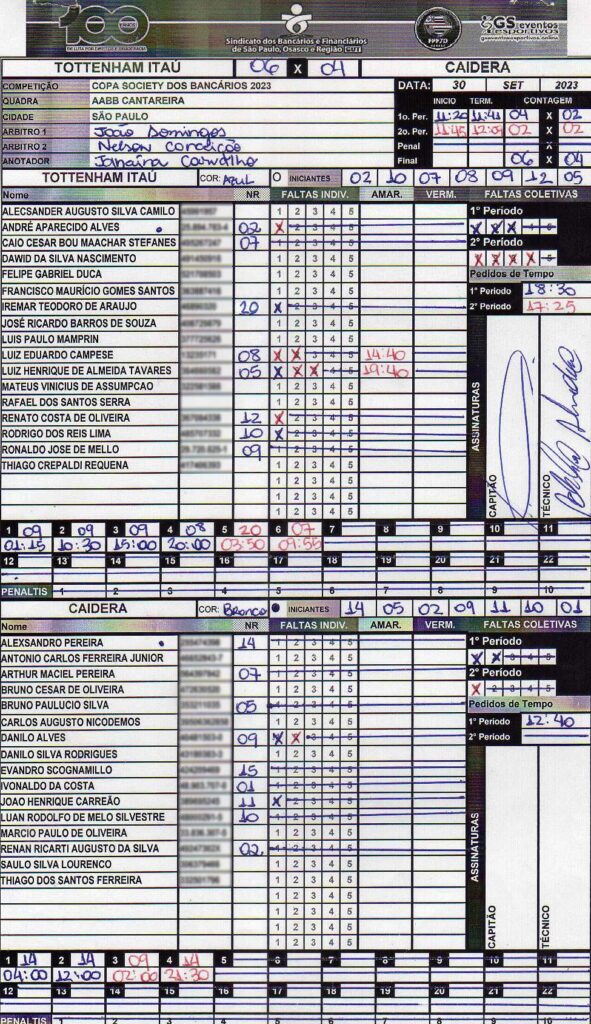 100 ANOS
DE LUTA POR DIREITOS E DEMOCRACIA
Sindicato dos Bancários e Financiários
de São Paulo, Osasco e Região CUT
FPF7D
GS eventos esportivos
TOTTENHAM ITAÚ 06 X 04 CAIDERA
COMPETIÇÃO COPA SOCIETY DOS BANCÁRIOS 2023 DATA: 30 SET 2023
QUADRA AABB CANTAREIRA INICIO TERM. CONTAGEM
CIDADE SÃO PAULO 1o. Per. 11:20 11:41 04 X 02
ARBITRO 1 João Domingos 2o. Per. 11:45 12:09 02 X 02
ARBITRO 2 Nelson Conceição Penal X
ANOTADOR Janaína Carvalho Final 06 X 04
TOTTENHAM ITAÚ COR: Azul O INICIANTES 02 10 07 08 09 12 05
Nome NR FALTAS INDIV. AMAR. VERM. FALTAS COLETIVAS
ALECSANDER AUGUSTO SILVA CAMILO 1 2 3 4 5 1º Período
ANDRÉ APARECIDO ALVES 02 X 2 3 4 5 X X X 4 5
CAIO CESAR BOU MAACHAR STEFANES 07 1 2 3 4 5 2º Período
DAWID DA SILVA NASCIMENTO 1 2 3 4 5 X X X X 5
FELIPE GABRIEL DUCA 1 2 3 4 5 Pedidos de Tempo
FRANCISCO MAURÍCIO GOMES SANTOS 1 2 3 4 5 1º Período 18:30
IREMAR TEODORO DE ARAUJO 20 X 2 3 4 5 2º Período 17:25
JOSÉ RICARDO BARROS DE SOUZA 1 2 3 4 5
LUIS PAULO MAMPRIN 1 2 3 4 5
LUIZ EDUARDO CAMPESE 08 X X 3 4 5 14:40
LUIZ HENRIQUE DE ALMEIDA TAVARES 05 X X X 4 5 19:40
MATEUS VINICIUS DE ASSUMPCAO 1 2 3 4 5
RAFAEL DOS SANTOS SERRA 1 2 3 4 5
RENATO COSTA DE OLIVEIRA 12 X 2 3 4 5
RODRIGO DOS REIS LIMA 10 X 2 3 4 5
RONALDO JOSE DE MELLO 09 1 2 3 4 5
THIAGO CREPALDI REQUENA 1 2 3 4 5
1 2 3 4 5
1 2 3 4 5
1 2 3 4 5
ASSINATURAS
CAPITÃO
TÉCNICO
1 09 2 09 3 09 4 08 5 20 6 07 7 8 9 10 11
01:15 10:30 15:00 20:00 03:50 09:55
12 13 14 15 16 17 18 19 20 21 22
PENALTIS 1 2 3 4 5 6 7 8 9 10
CAIDERA COR: Branco INICIANTES 14 05 02 09 11 10 01
Nome NR FALTAS INDIV. AMAR. VERM. FALTAS COLETIVAS
ALEXSANDRO PEREIRA 14 1 2 3 4 5 1º Período
ANTONIO CARLOS FERREIRA JUNIOR 1 2 3 4 5 X X 3 4 5
ARTHUR MACIEL PEREIRA 07 1 2 3 4 5 2º Período
BRUNO CESAR DE OLIVEIRA 1 2 3 4 5 X 2 3 4 5
BRUNO PAULUCIO SILVA 05 1 2 3 4 5 Pedidos de Tempo
CARLOS AUGUSTO NICODEMOS 1 2 3 4 5 1º Período 12:40
DANILO ALVES 09 X X 3 4 5 2º Período
DANILO SILVA RODRIGUES 1 2 3 4 5
EVANDRO SCOGNAMILLO 15 1 2 3 4 5
IVONALDO DA COSTA 01 1 2 3 4 5
JOAO HENRIQUE CARREÃO 11 X 2 3 4 5
LUAN RODOLFO DE MELO SILVESTRE 10 1 2 3 4 5
MARCIO PAULO DE OLIVEIRA 1 2 3 4 5
RENAN RICARTI AUGUSTO DA SILVA 02 1 2 3 4 5
SAULO SILVA LOURENCO 1 2 3 4 5
THIAGO DOS SANTOS FERREIRA 1 2 3 4 5
1 2 3 4 5
1 2 3 4 5
1 2 3 4 5
1 2 3 4 5
ASSINATURAS
CAPITÃO
TÉCNICO
1 14 2 14 3 09 4 14 5 6 7 8 9 10 11
04:00 12:00 02:00 21:30
12 13 14 15 16 17 18 19 20 21 22
PENALTIS 1 2 3 4 5 6 7 8 9 10